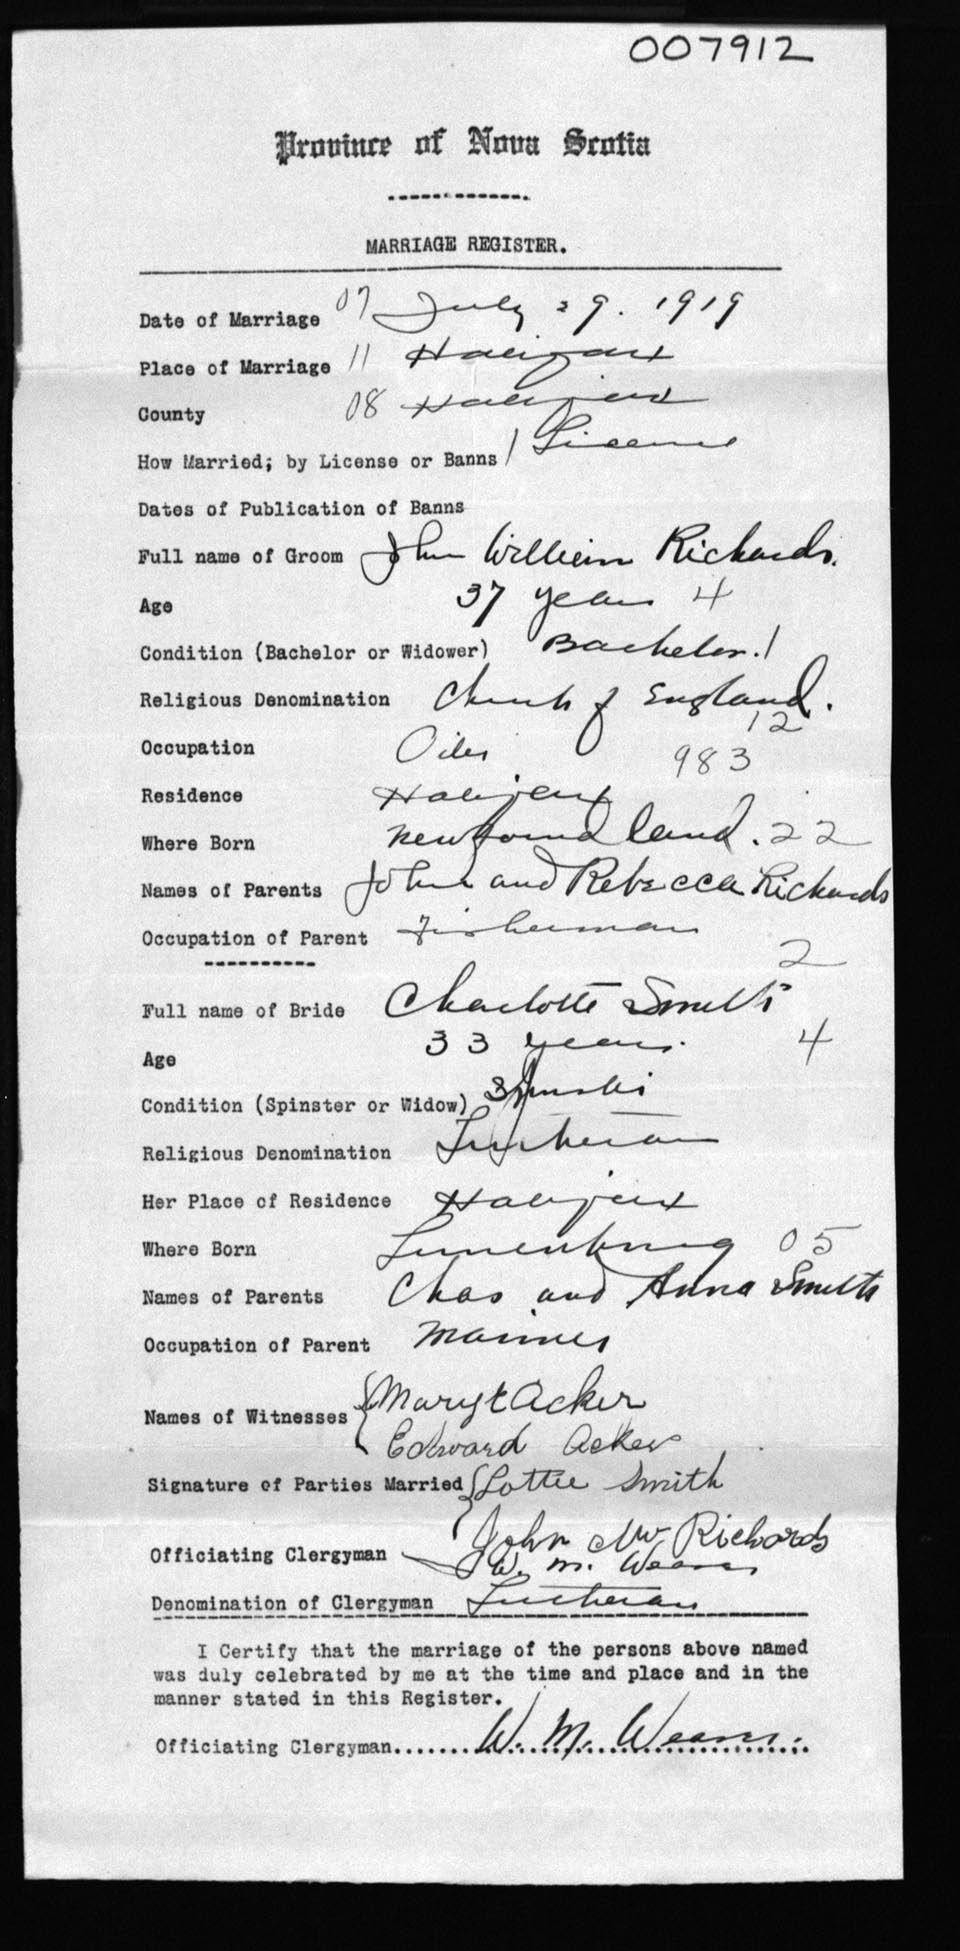 007912
Province of Nova Scotia
MARRIAGE REGISTER.
Date of Marriage 07 July 29. 1919
Place of Marriage 11 Halifax
County 08 Halifax
How Married; by License or Banns 1 License
Dates of Publication of Banns
Full name of Groom John William Richards.
Age 37 years 4
Condition (Bachelor or Widower) Bachelor. 1
Religious Denomination Church of England.
12
Occupation Oiler 983
Residence Halifax
Where Born Newfoundland. 22
Names of Parents John and Rebecca Richards
Occupation of Parent Fisherman
2
Full name of Bride Charlotte Smith
Age 33 years. 4
Condition (Spinster or Widow) Spinster
Religious Denomination Lutheran
Her Place of Residence Halifax
Where Born Lunenburg 05
Names of Parents Chas and Anna Smith
Occupation of Parent Mariner
Names of Witnesses Mary E Acker
Edward Acker
Signature of Parties Married Lottie Smith
John Wm Richards
Officiating Clergyman W. M. Weaver
Denomination of Clergyman Lutheran
I Certify that the marriage of the persons above named
was duly celebrated by me at the time and place and in the
manner stated in this Register.
Officiating Clergyman....... W. M. Weaver.